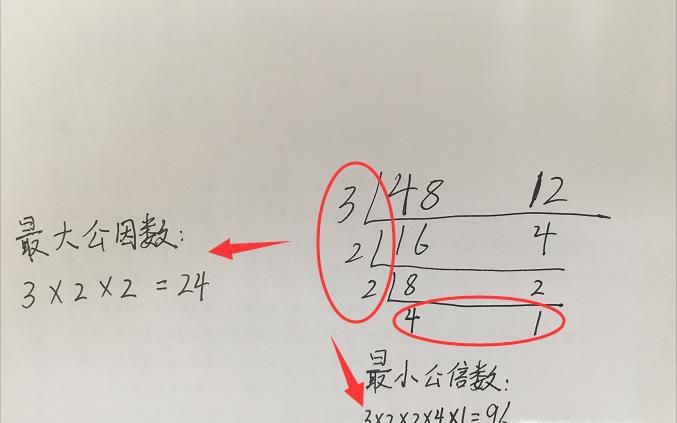 3 48 12
最大公因数:
2 16 4
3×2×2 =24
2 8 2
4 1
最小公倍数:
3×2×2×4×1=96